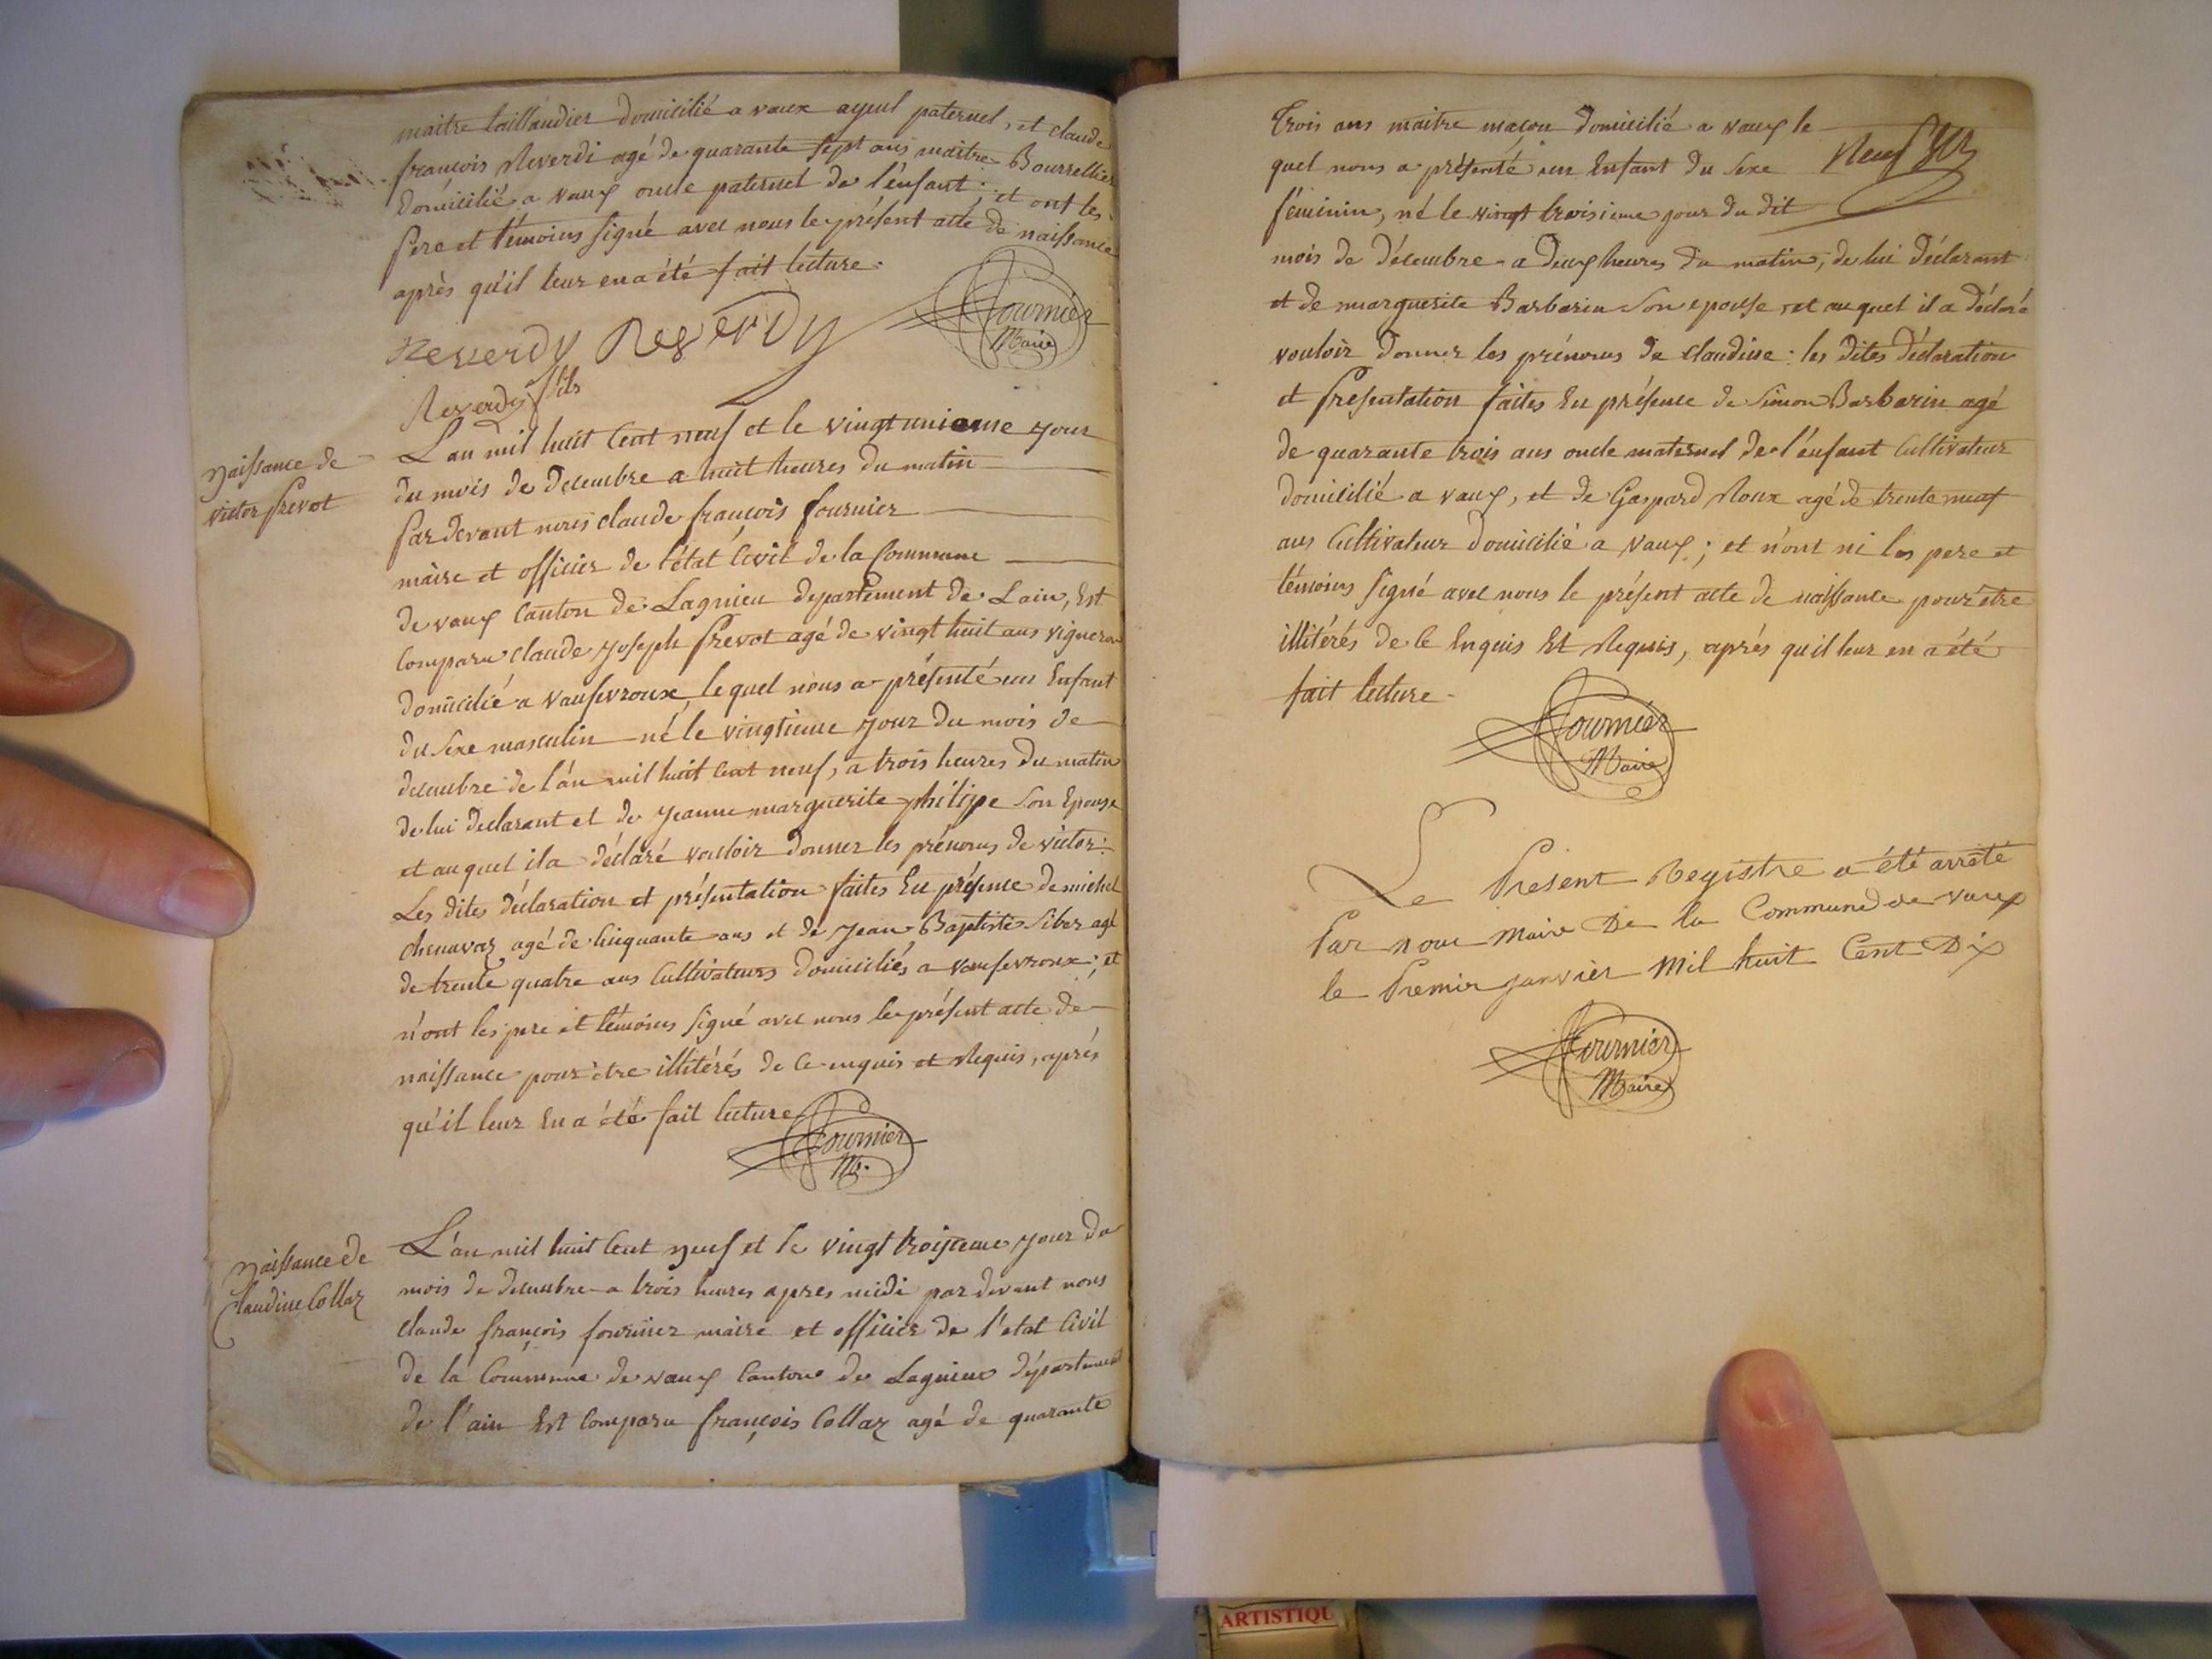 maitre taillandier domicilié a vaux ayeul paternel, et claude
françois Reverdi agé de quarante sept ans maitre Bourrellier
domicilié a vaux oncle paternel de l'énfant; et ont les
pere et témoins signé avec nous le présent acte de naissance
après qu'il leur en a été fait lecture.
Reverdy Reverdy Fournier
Maire
Reverdy fils
naissance de
victor prevot
L'an mil huit Cent neuf et le vingt unieme jour
du mois de decembre a huit heures du matin
pardevant nous claude françois fournier
maire et officier de l'état Civil de la Commune
de vaux Canton de Lagnieu departement de Lain, Est
Comparu claude joseph prevot agé de vingt huit ans vigneron
domicilié a vaufevroux, lequel nous a présenté un Enfant
du sexe masculin né le vingtieme jour du mois de
decembre de l'an mil huit Cent neuf, a trois heures du matin
de lui declarant et de jeanne marguerite philippe son Epouse
et auquel il a déclaré vouloir donner les prénoms de victor:
Les dites déclaration et présentation faites En présence de michel
chenavaz agé de Cinquante ans et de jean Baptiste Siber agé
de trente quatre ans Cultivateurs domiciliés a vaufevroux; et
n'ont les pere et témoins signé avec nous le présent acte de
naissance pour être illitérés de Ce enquis et Requis, aprés
qu'il leur En a été fait lecture
Fournier
M.
naissance de
Claudine Collaz
L'an mil huit Cent neuf et le vingt troisieme jour du
mois de decembre a trois heures apres midi par devant nous
claude françois fournier maire et officier de l'etat Civil
de la Commune de vaux Canton de Lagnieu département
de l'ain Est Comparu françois Collaz agé de quarante
Trois ans maitre maçon domicilié a vaux le
quel nous a présenté un Enfant du sexe
féminin, né le vingt troisieme jour du dit
mois de décembre a deux heures du matin, de lui déclarant
et de marguerite Barbarin son epouse et auquel il a déclaré
vouloir donner les prénoms de claudine: les dites déclaration
et présentation faites En présence de Simon Barbarin agé
de quarante trois ans oncle maternel de l'énfant Cultivateur
domicilié a vaux, et de Gaspard Roux agé de trente neuf
ans Cultivateur domicilié a vaux; et n'ont ni les pere et
témoins signé avec nous le présent acte de naissance pour être
illitérés de Ce Enquis Et Requis, aprés qu'il leur en a été
fait lecture.
Fournier
Maire
Le Present Registre a été arrêté
Par nous Maire De la Commune de vaux
le Premier janvier Mil huit Cent Dix
Fournier
Maire
ARTISTIQU